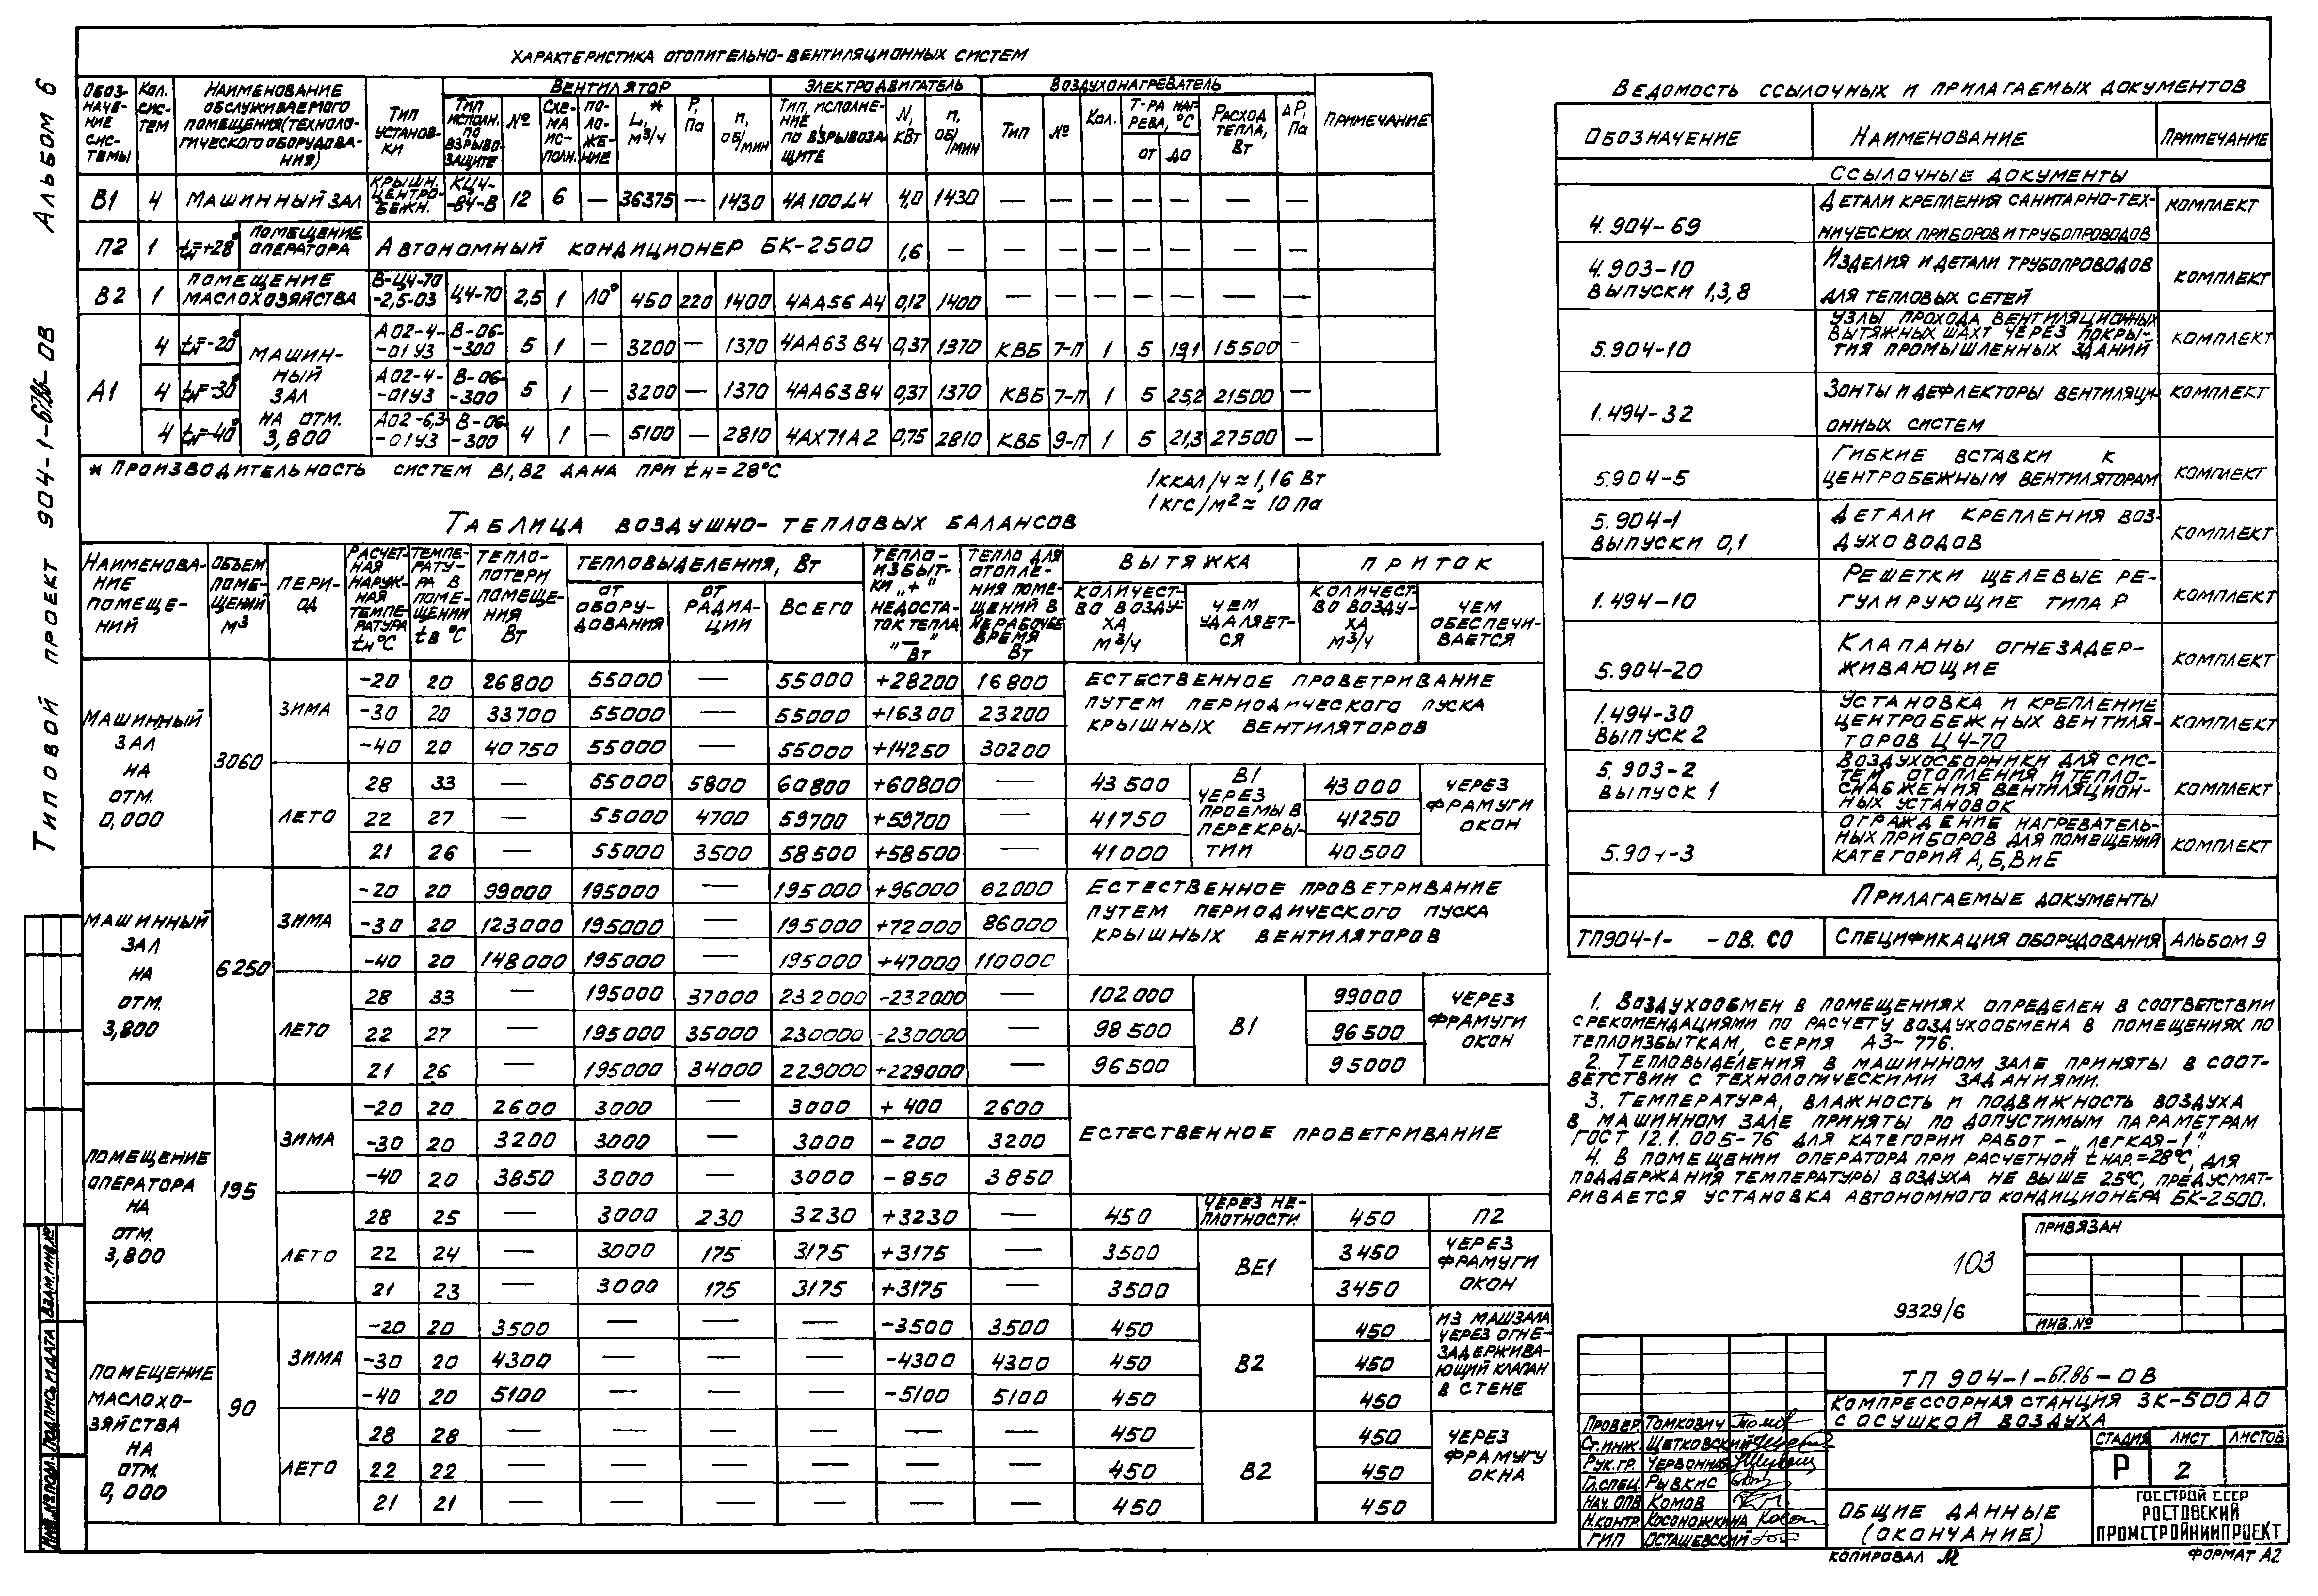 Типовой проект 904-1-67.86-ОВ Альбом 6
ХАРАКТЕРИСТИКА ОТОПИТЕЛЬНО-ВЕНТИЛЯЦИОННЫХ СИСТЕМ
ОБОЗНАЧЕ-НИЕ СИС-ТЕМЫ | Кол. СИС-ТЕМ | НАИМЕНОВАНИЕ ОБСЛУЖИВАЕМОГО ПОМЕЩЕНИЯ (ТЕХНОЛО-ГИЧЕСКОГО ОБОРУДОВА-НИЯ) | ТИП УСТАНОВ-КИ | ВЕНТИЛЯТОР | ЭЛЕКТРОДВИГАТЕЛЬ | ВОЗДУХОНАГРЕВАТЕЛЬ | ПРИМЕЧАНИЕ
ТИП ИСПОЛН. ПО ВЗРЫВО-ЗАЩИТЕ | № | СХЕ-МА ИС-ПОЛН. | ПО-ЛО-ЖЕ-НИЕ | L,* М³/Ч | Р, Па | n, ОБ/МИН | ТИП, ИСПОЛНЕ-НИЕ, ПО ВЗРЫВОЗА-ЩИТЕ | N, КВТ | n, ОБ/МИН | ТИП | № | Кол. | Т-РА НАГ-РЕВА, °С ОТ ДО | РАСХОД ТЕПЛА, Вт | ΔР, Па
В1 | 4 | МАШИННЫЙ ЗАЛ | КРЫШН. ЦЕНТРО-БЕЖН. | КЦ4-84-В | 12 | 6 | — | 36375 | — | 1430 | 4А100L4 | 4,0 | 1430 | — | — | — | — | — | — | —
П2 | 1 | tн=+28° | ПОМЕЩЕНИЕ ОПЕРАТОРА | АВТОНОМНЫЙ КОНДИЦИОНЕР БК-2500 | 1,6 | — | — | — | — | — | — | — | —
В2 | 1 | ПОМЕЩЕНИЕ МАСЛОХОЗЯЙСТВА | В-Ц4-70-2,5-03 | Ц4-70 | 2,5 | 1 | Л0° | 450 | 220 | 1400 | 4АА56А4 | 0,12 | 1400 | — | — | — | — | — | — | —
А1 | МАШИН-НЫЙ ЗАЛ НА ОТМ. 3,800
4 | tн=-20° | А02-4-01У3 | В-06-300 | 5 | 1 | — | 3200 | — | 1370 | 4АА63В4 | 0,37 | 1370 | КВБ | 7-П | 1 | 5 | 19,1 | 15500 | —
4 | tн=-30° | А02-4-01У3 | В-06-300 | 5 | 1 | — | 3200 | — | 1370 | 4АА63В4 | 0,37 | 1370 | КВБ | 7-П | 1 | 5 | 25,2 | 21500 | —
4 | tн=-40° | А02-6,3-01У3 | В-06-300 | 4 | 1 | — | 5100 | — | 2810 | 4АХ71А2 | 0,75 | 2810 | КВБ | 9-П | 1 | 5 | 21,3 | 27500 | —
* ПРОИЗВОДИТЕЛЬНОСТЬ СИСТЕМ В1, В2 ДАНА ПРИ tн=28°С
1ККАЛ/Ч ≈ 1,16 Вт
1КГС/М² ≈ 10 Па
ТАБЛИЦА ВОЗДУШНО-ТЕПЛОВЫХ БАЛАНСОВ
НАИМЕНОВА-НИЕ ПОМЕЩЕ-НИЙ | ОБЪЕМ ПОМЕ-ЩЕНИЙ М³ | ПЕРИ-ОД | РАСЧЕТ-НАЯ НАРУЖ-НАЯ ТЕМПЕ-РАТУРА tн °С | ТЕМПЕ-РАТУ-РА В ПОМЕ-ЩЕНИИ tв °С | ТЕПЛО-ПОТЕРИ ПОМЕЩЕ-НИЯ Вт | ТЕПЛОВЫДЕЛЕНИЯ, Вт | ТЕПЛО-ИЗБЫТ-КИ „+" НЕДОСТА-ТОК ТЕПЛА „—" Вт | ТЕПЛО ДЛЯ ОТОПЛЕ-НИЯ ПОМЕ-ЩЕНИЙ В НЕРАБОЧЕЕ ВРЕМЯ Вт | ВЫТЯЖКА | ПРИТОК
ОТ ОБОРУ-ДОВАНИЯ | ОТ РАДИА-ЦИИ | ВСЕГО | КОЛИЧЕСТ-ВО ВОЗДУ-ХА М³/Ч | ЧЕМ УДАЛЯЕТ-СЯ | КОЛИЧЕСТ-ВО ВОЗДУ-ХА М³/Ч | ЧЕМ ОБЕСПЕЧИ-ВАЕТСЯ
МАШИННЫЙ ЗАЛ НА ОТМ. 0,000 | 3060
ЗИМА | -20 | 20 | 26800 | 55000 | — | 55000 | +28200 | 16800 | ЕСТЕСТВЕННОЕ ПРОВЕТРИВАНИЕ ПУТЕМ ПЕРИОДИЧЕСКОГО ПУСКА КРЫШНЫХ ВЕНТИЛЯТОРОВ
-30 | 20 | 33700 | 55000 | — | 55000 | +16300 | 23200
-40 | 20 | 40750 | 55000 | — | 55000 | +14250 | 30200
ЛЕТО | 28 | 33 | — | 55000 | 5800 | 60800 | +60800 | — | 43500 | В1 ЧЕРЕЗ ПРОЕМЫ В ПЕРЕКРЫ-ТИИ | 43000 | ЧЕРЕЗ ФРАМУГИ ОКОН
22 | 27 | — | 55000 | 4700 | 59700 | +59700 | — | 41750 | 41250
21 | 26 | — | 55000 | 3500 | 58500 | +58500 | — | 41000 | 40500
МАШИННЫЙ ЗАЛ НА ОТМ. 3,800 | 6250
ЗИМА | -20 | 20 | 99000 | 195000 | — | 195000 | +96000 | 62000 | ЕСТЕСТВЕННОЕ ПРОВЕТРИВАНИЕ ПУТЕМ ПЕРИОДИЧЕСКОГО ПУСКА КРЫШНЫХ ВЕНТИЛЯТОРОВ
-30 | 20 | 123000 | 195000 | — | 195000 | +72000 | 86000
-40 | 20 | 148000 | 195000 | — | 195000 | +47000 | 110000
ЛЕТО | 28 | 33 | — | 195000 | 37000 | 232000 | -232000 | — | 102000 | В1 | 99000 | ЧЕРЕЗ ФРАМУГИ ОКОН
22 | 27 | — | 195000 | 35000 | 230000 | -230000 | — | 98500 | 96500
21 | 26 | — | 195000 | 34000 | 229000 | +229000 | — | 96500 | 95000
ПОМЕЩЕНИЕ ОПЕРАТОРА НА ОТМ. 3,800 | 195
ЗИМА | -20 | 20 | 2600 | 3000 | — | 3000 | +400 | 2600 | ЕСТЕСТВЕННОЕ ПРОВЕТРИВАНИЕ
-30 | 20 | 3200 | 3000 | — | 3000 | -200 | 3200
-40 | 20 | 3850 | 3000 | — | 3000 | -850 | 3850
ЛЕТО | 28 | 25 | — | 3000 | 230 | 3230 | +3230 | — | 450 | ЧЕРЕЗ НЕ-ПЛОТНОСТИ | 450 | П2
22 | 24 | — | 3000 | 175 | 3175 | +3175 | — | 3500 | ВЕ1 | 3450 | ЧЕРЕЗ ФРАМУГИ ОКОН
21 | 23 | — | 3000 | 175 | 3175 | +3175 | — | 3500 | 3450
ПОМЕЩЕНИЕ МАСЛОХО-ЗЯЙСТВА НА ОТМ. 0,000 | 90
ЗИМА | -20 | 20 | 3500 | — | — | — | -3500 | 3500 | 450 | В2 | 450 | ИЗ МАШЗАЛА ЧЕРЕЗ ОГНЕ-ЗАДЕРЖИВА-ЮЩИЙ КЛАПАН В СТЕНЕ
-30 | 20 | 4300 | — | — | — | -4300 | 4300 | 450 | 450
-40 | 20 | 5100 | — | — | — | -5100 | 5100 | 450 | 450
ЛЕТО | 28 | 28 | — | — | — | — | — | — | 450 | В2 | 450 | ЧЕРЕЗ ФРАМУГУ ОКНА
22 | 22 | — | — | — | — | — | — | 450 | 450
21 | 21 | — | — | — | — | — | — | 450 | 450
ВЕДОМОСТЬ ССЫЛОЧНЫХ И ПРИЛАГАЕМЫХ ДОКУМЕНТОВ
ОБОЗНАЧЕНИЕ | НАИМЕНОВАНИЕ | ПРИМЕЧАНИЕ
ССЫЛОЧНЫЕ ДОКУМЕНТЫ
4.904-69 | ДЕТАЛИ КРЕПЛЕНИЯ САНИТАРНО-ТЕХ-НИЧЕСКИХ ПРИБОРОВ И ТРУБОПРОВОДОВ | КОМПЛЕКТ
4.903-10 ВЫПУСКИ 1,3,8 | ИЗДЕЛИЯ И ДЕТАЛИ ТРУБОПРОВОДОВ ДЛЯ ТЕПЛОВЫХ СЕТЕЙ | КОМПЛЕКТ
5.904-10 | УЗЛЫ ПРОХОДА ВЕНТИЛЯЦИОННЫХ ВЫТЯЖНЫХ ШАХТ ЧЕРЕЗ ПОКРЫ-ТИЯ ПРОМЫШЛЕННЫХ ЗДАНИЙ | КОМПЛЕКТ
1.494-32 | ЗОНТЫ И ДЕФЛЕКТОРЫ ВЕНТИЛЯЦИ-ОННЫХ СИСТЕМ | КОМПЛЕКТ
5.904-5 | ГИБКИЕ ВСТАВКИ К ЦЕНТРОБЕЖНЫМ ВЕНТИЛЯТОРАМ | КОМПЛЕКТ
5.904-1 ВЫПУСКИ 0,1 | ДЕТАЛИ КРЕПЛЕНИЯ ВОЗ-ДУХОВОДОВ | КОМПЛЕКТ
1.494-10 | РЕШЕТКИ ЩЕЛЕВЫЕ РЕ-ГУЛИРУЮЩИЕ ТИПА Р | КОМПЛЕКТ
5.904-20 | КЛАПАНЫ ОГНЕЗАДЕР-ЖИВАЮЩИЕ | КОМПЛЕКТ
1.494-30 ВЫПУСК 2 | УСТАНОВКА И КРЕПЛЕНИЕ ЦЕНТРОБЕЖНЫХ ВЕНТИЛЯ-ТОРОВ Ц4-70 | КОМПЛЕКТ
5.903-2 ВЫПУСК 1 | ВОЗДУХОСБОРНИКИ ДЛЯ СИС-ТЕМ ОТОПЛЕНИЯ И ТЕПЛО-СНАБЖЕНИЯ ВЕНТИЛЯЦИОН-НЫХ УСТАНОВОК | КОМПЛЕКТ
5.904-3 | ОГРАЖДЕНИЕ НАГРЕВАТЕЛЬ-НЫХ ПРИБОРОВ ДЛЯ ПОМЕЩЕНИЙ КАТЕГОРИЙ А, Б, В и Е | КОМПЛЕКТ
ПРИЛАГАЕМЫЕ ДОКУМЕНТЫ
ТП904-1- -ОВ.СО | СПЕЦИФИКАЦИЯ ОБОРУДОВАНИЯ | АЛЬБОМ 9
1. ВОЗДУХООБМЕН В ПОМЕЩЕНИЯХ ОПРЕДЕЛЕН В СООТВЕТСТВИИ
С РЕКОМЕНДАЦИЯМИ ПО РАСЧЕТУ ВОЗДУХООБМЕНА В ПОМЕЩЕНИЯХ ПО
ТЕПЛОИЗБЫТКАМ, СЕРИЯ АЗ-776.
2. ТЕПЛОВЫДЕЛЕНИЯ В МАШИННОМ ЗАЛЕ ПРИНЯТЫ В СООТ-
ВЕТСТВИИ С ТЕХНОЛОГИЧЕСКИМИ ЗАДАНИЯМИ.
3. ТЕМПЕРАТУРА, ВЛАЖНОСТЬ И ПОДВИЖНОСТЬ ВОЗДУХА
В МАШИННОМ ЗАЛЕ ПРИНЯТЫ ПО ДОПУСТИМЫМ ПАРАМЕТРАМ
ГОСТ 12.1.005-76 ДЛЯ КАТЕГОРИИ РАБОТ - „ЛЕГКАЯ-1".
4. В ПОМЕЩЕНИИ ОПЕРАТОРА ПРИ РАСЧЕТНОЙ tНАР.=28°С, ДЛЯ
ПОДДЕРЖАНИЯ ТЕМПЕРАТУРЫ ВОЗДУХА НЕ ВЫШЕ 25°С, ПРЕДУСМАТ-
РИВАЕТСЯ УСТАНОВКА АВТОНОМНОГО КОНДИЦИОНЕРА БК-2500.
ПРИВЯЗАН
103
9329/6
ИНВ.№
ТП 904-1-67.86-ОВ
КОМПРЕССОРНАЯ СТАНЦИЯ 3К-500АО
С ОСУШКОЙ ВОЗДУХА
ПРОВЕР. ТОМКОВИЧ
СТ.ИНЖ. ЩЕТКОВСКИЙ
РУК.ГР. ЧЕРВОННАЯ
ГЛ.СПЕЦ. РЫВКИС
НАЧ.ОПВ КОМОВ
Н.КОНТР. КОСОНОЖКИНА
ГИП ОСТАШЕВСКИЙ
СТАДИЯ ЛИСТ ЛИСТОВ
Р 2
ОБЩИЕ ДАННЫЕ
(ОКОНЧАНИЕ)
ГОССТРОЙ СССР
РОСТОВСКИЙ
ПРОМСТРОЙНИИПРОЕКТ
КОПИРОВАЛ
ФОРМАТ А2
ИНВ.№ПОДЛ. ПОДПИСЬ И ДАТА ВЗАМ.ИНВ.№